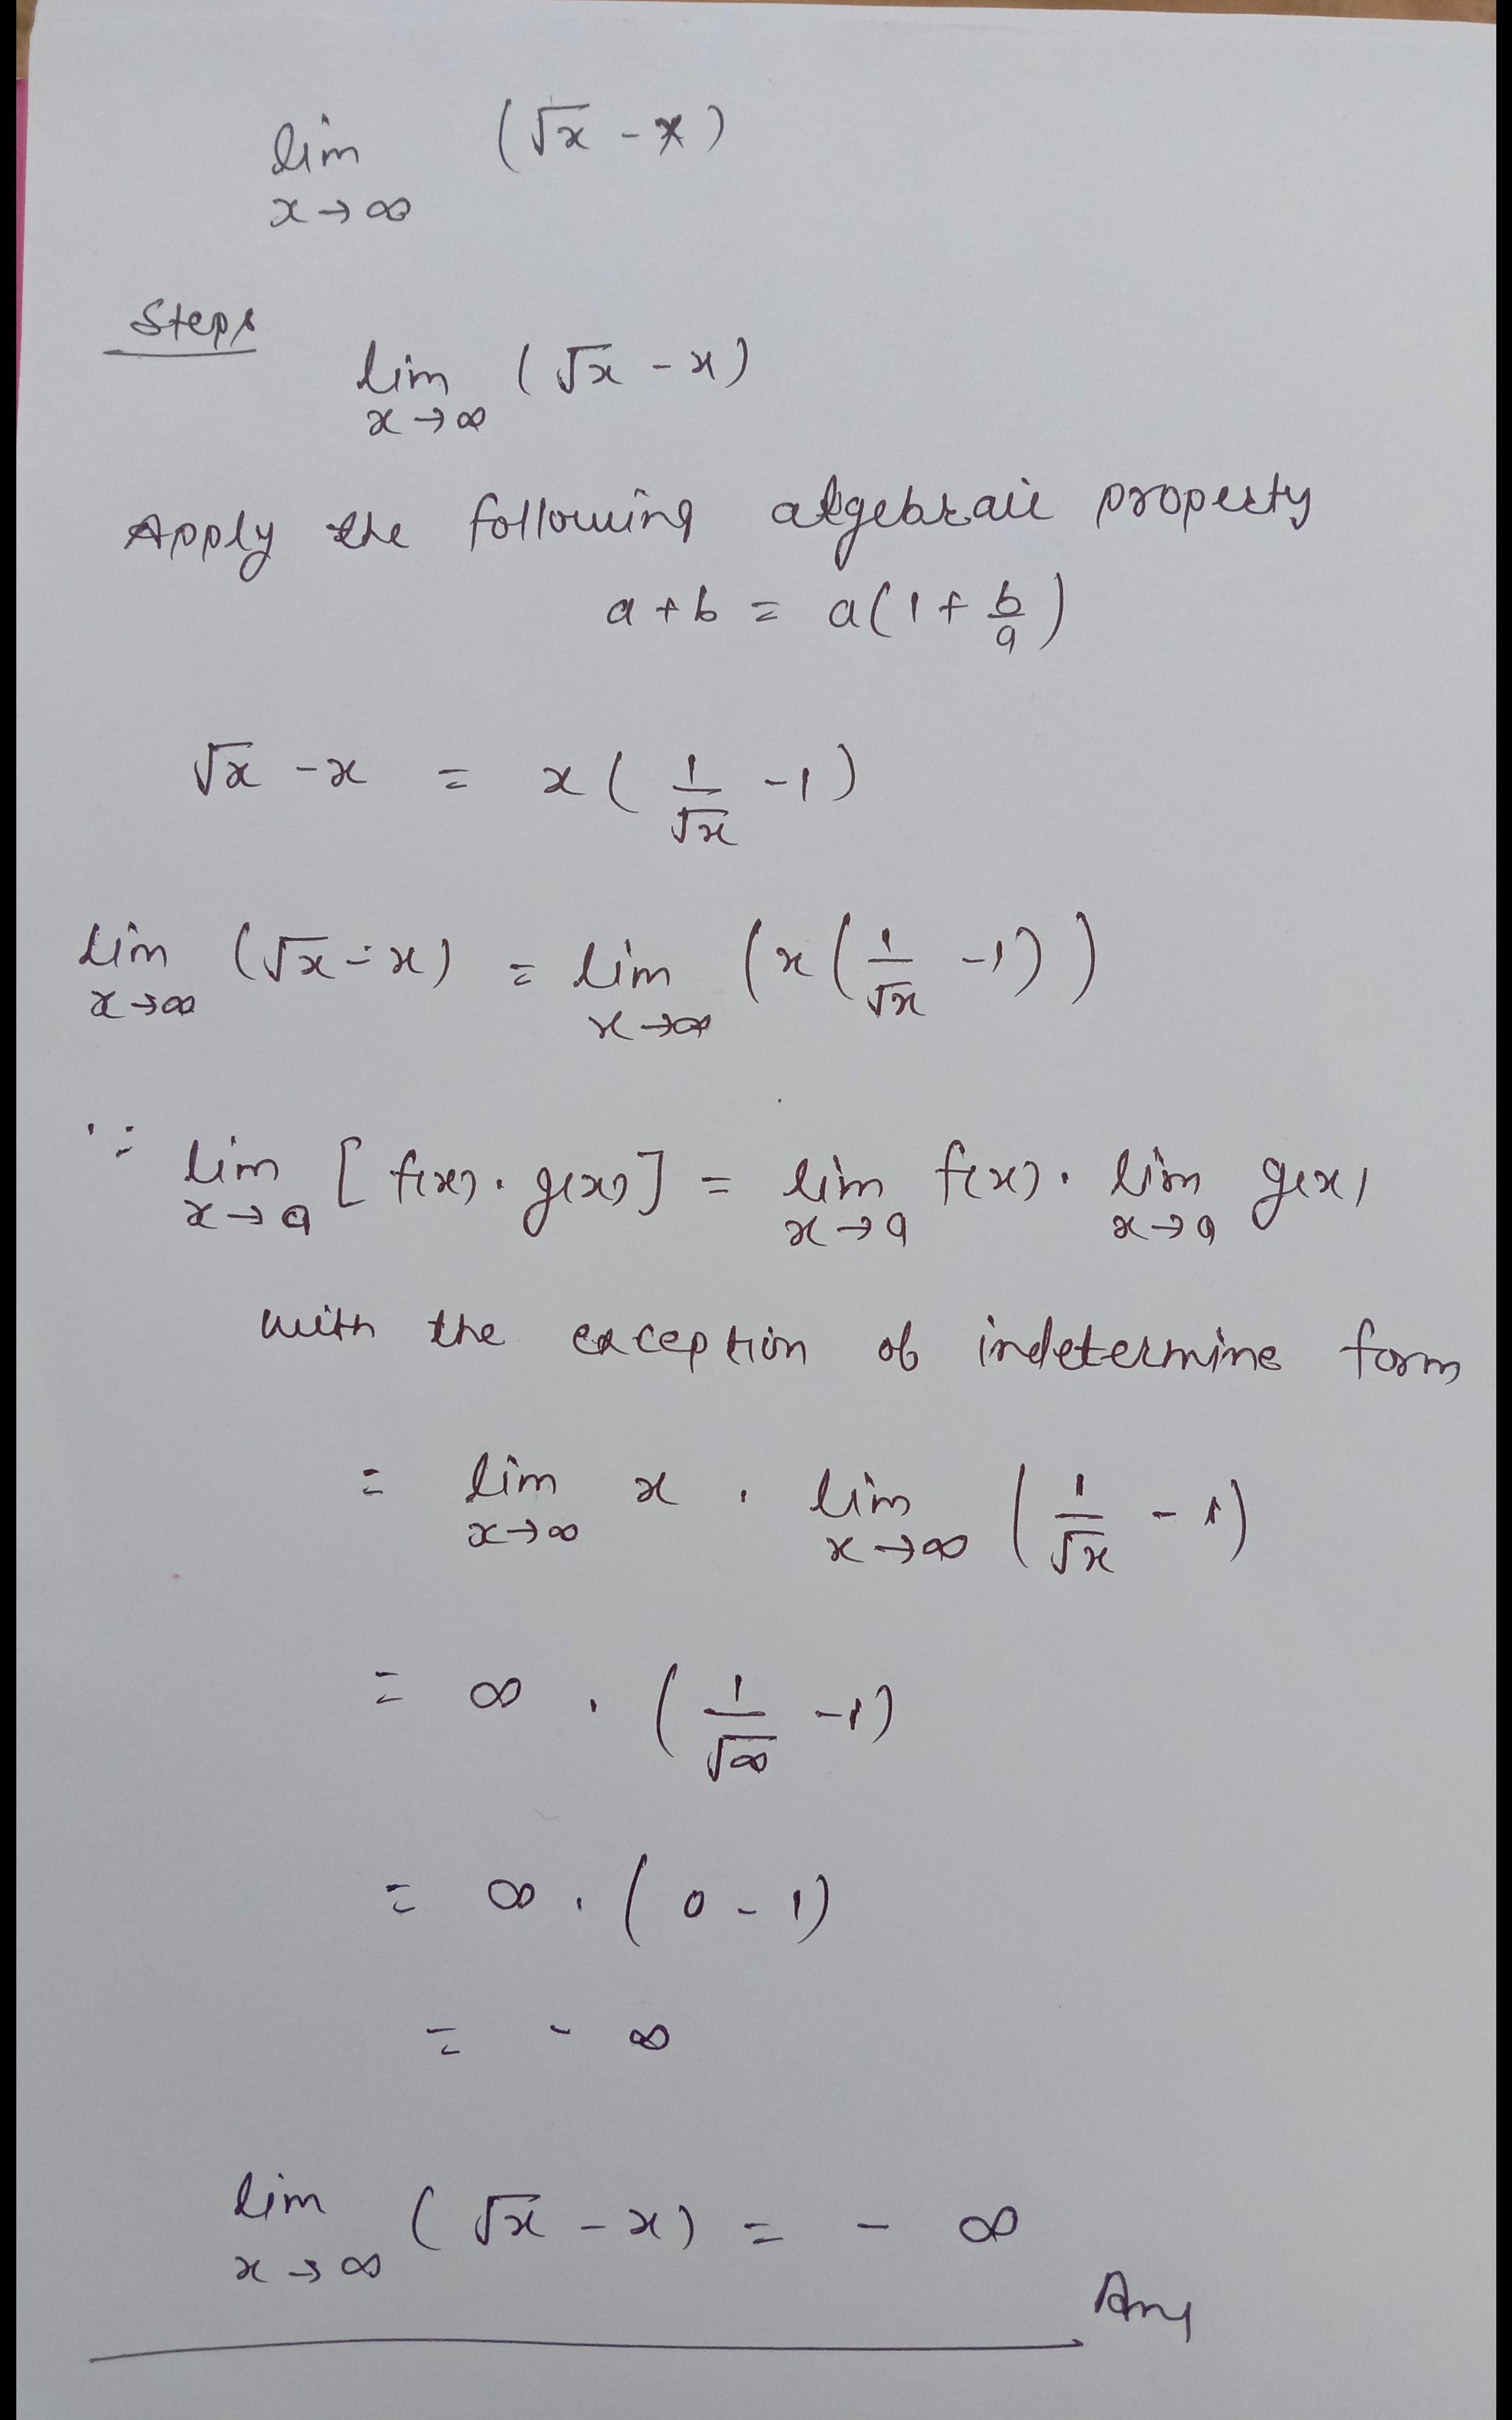 lim (√x - x)
x→∞
Steps
lim (√x - x)
x→∞
Apply the following algebraic property
a + b = a(1 + b/a)
√x - x = x(1/√x - 1)
lim (√x - x) = lim (x(1/√x - 1))
x→∞ x→∞
∵ lim [f(x) · g(x)] = lim f(x) · lim g(x)
x→a x→a x→a
with the exception of indetermine form
= lim x · lim (1/√x - 1)
x→∞ x→∞
= ∞ · (1/√∞ - 1)
= ∞ · (0 - 1)
= - ∞
lim (√x - x) = - ∞
x→∞
Ans